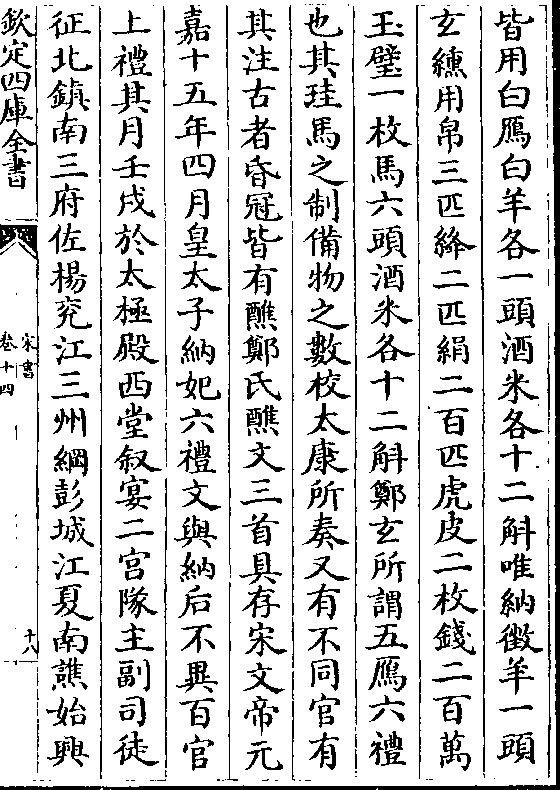 皆用白鴈白羊各一頭酒米各十二斛唯納徵羊一頭
玄纁用帛三匹絳二匹絹二百匹虎皮二枚錢二百萬
玉璧一枚馬六頭酒米各十二斛鄭玄所謂五鴈六禮
也其珪馬之制備物之數校太康所奏又有不同官有
其注古者昏冠皆有醮鄭氏醮文三首具存宋文帝元
嘉十五年四月皇太子納妃六禮文與納后不異百官
上禮其月壬戌於太極殿西堂叙宴二宮隊主副司徒
征北鎮南三府佐楊兖江三州綱彭城江夏南譙始興
欽定四庫全書
宋書
卷十四
十八